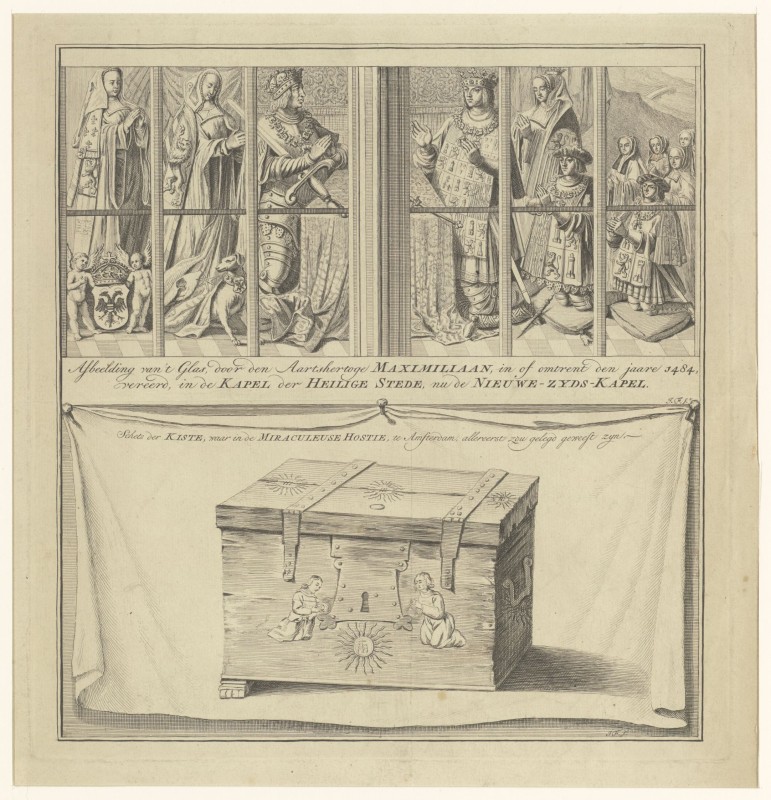 Afbeelding van't Glas, door den Aartshertoge MAXIMILIAAN, in of omtrent den jaare 1484,
vereerd, in de KAPEL der HEILIGE STEDE, nu de NIEUWE-ZYDS-KAPEL.
Schets der KISTE, waar in de MIRACULEUSE HOSTIE, te Amsterdam, allereerst zou gelegd geweest zyn.